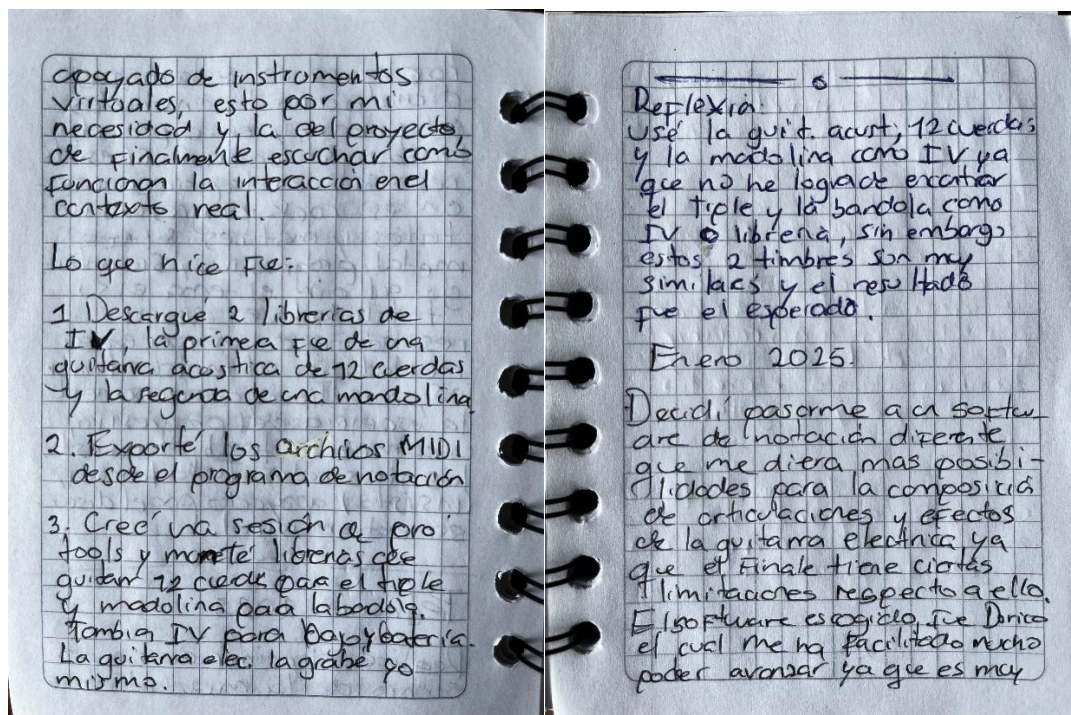 apoyado de instrumentos
virtuales, esto por mi
necesidad y la del proyecto
de finalmente escuchar como
funcionan la interacción en el
contexto real.
Lo que hice fue:
1 Descargué 2 librerias de
IV, la primera fue de una
guitarra acostica de 12 cuerdas
y la segunda de una mandolina
2. Exporté los archivos MIDI
desde el programa de notación
3. Creé una sesión de pro
tools y monté librerias de
guitarr 12 cuerda para el tiple
y madolina para la bandola.
Tambien IV para bajo y bateria.
La guitarra elec. la grabé yo
mismo.
Reflexión.
Usé la guit. acust, 12 cuerdas
y la madolina como IV ya
que no he lograde encontrar
el tiple y la bandola como
IV o libreria, sin embargo
estos 2 timbres son muy
similares y el resultado
fue el esperado.
Enero 2025.
Decidí pasarme a un softw-
are de notación diferente
que me diera mas posibi-
lidades para la composición
de articulaciones y efectos
de la guitarra electrica ya
que el Finale tiene ciertas
limitaciones respecto a ello.
El software escogido fue Dorico
el cual me ha facilitado mucho
poder avanzar ya que es muy